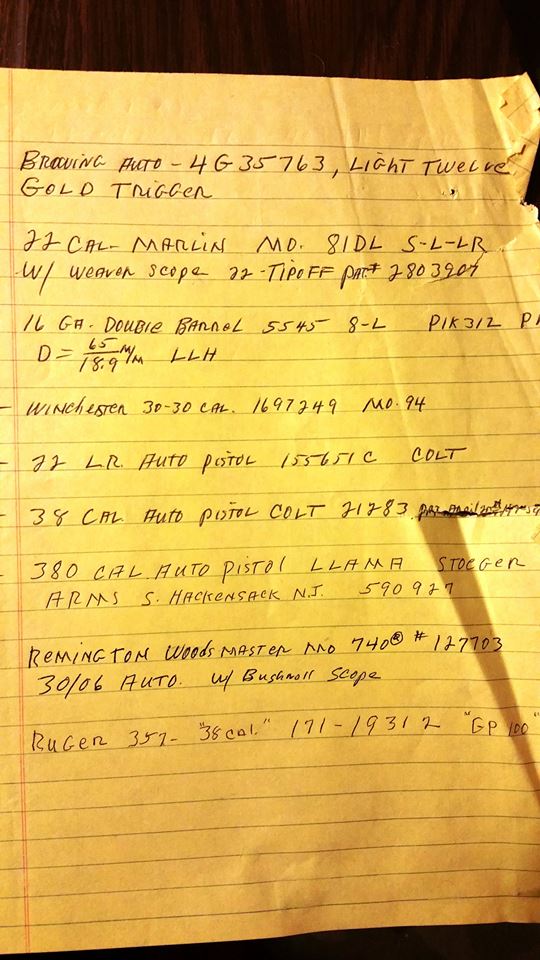 BROWING AUTO - 4G35763, LIGHT TWELVE
GOLD TRIGGER
22 CAL- MARLIN MO. 81DL S-L-LR
W/ WEAVER SCOPE 22-TIPOFF PAT# 2803907
16 GA. DOUBLE BARREL 5545 8-L P1K312
D = 65/18.9 M/M LLH
- WINCHESTER 30-30 CAL. 1697249 MO. 94
- 22 L.R. AUTO PISTOL 155651C COLT
- 38 CAL AUTO PISTOL COLT 21283
- 380 CAL AUTO PISTOL LLAMA STOEGER
ARMS S. HACKENSACK N.J. 590927
REMINGTON WOODSMASTER MO 740® # 127703
30/06 AUTO. W/ Bushnell Scope
RUGER 357- "38 cal." 171-19312 "GP 100"